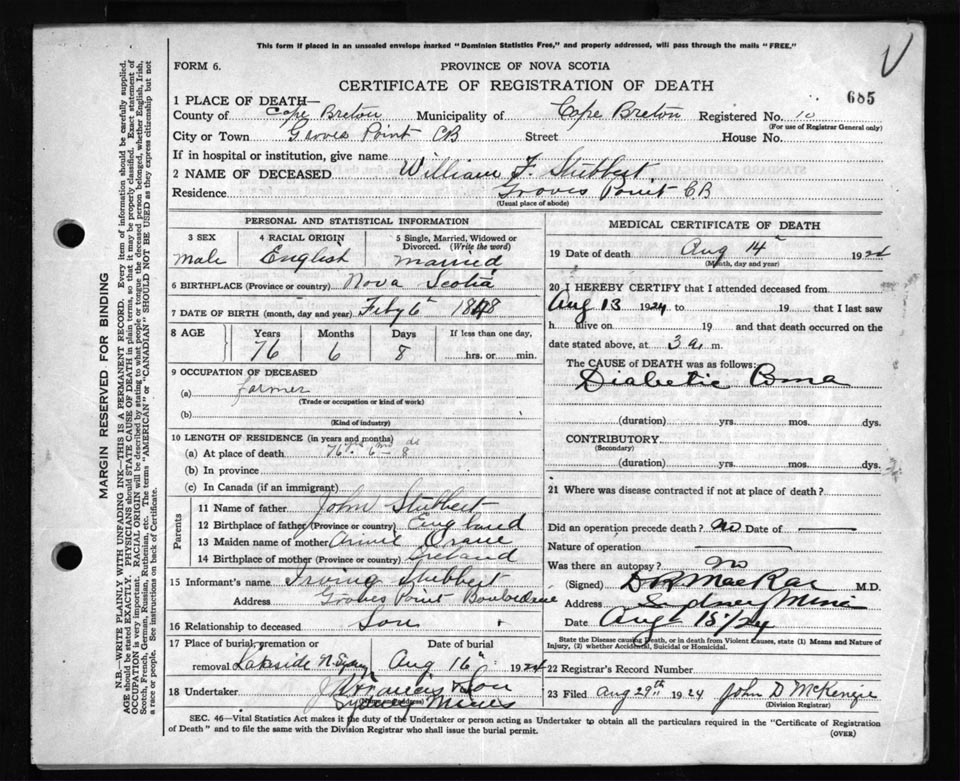 This form if placed in an unsealed envelope marked "Dominion Statistics Free," and properly addressed, will pass through the mails "FREE."
FORM 6.
PROVINCE OF NOVA SCOTIA
CERTIFICATE OF REGISTRATION OF DEATH
685
1 PLACE OF DEATH—
County of Cape Breton Municipality of Cape Breton Registered No. 10
(For use of Registrar General only)
City or Town Groves Point CB Street House No.
If in hospital or institution, give name
2 NAME OF DECEASED William F. Stubbert
Residence Groves Point CB
(Usual place of abode)
PERSONAL AND STATISTICAL INFORMATION
3 SEX
male
4 RACIAL ORIGIN
English
5 Single, Married, Widowed or Divorced. (Write the word)
married
6 BIRTHPLACE (Province or country) Nova Scotia
7 DATE OF BIRTH (month, day and year) Feby 6th 1848
8 AGE Years Months Days If less than one day,
76 6 8 hrs. or min.
9 OCCUPATION OF DECEASED
(a) farmer
(Trade or occupation or kind of work)
(b)
(Kind of industry)
10 LENGTH OF RESIDENCE (in years and months)
(a) At place of death 76 yrs 6 mo 8 ds
(b) In province
(c) In Canada (if an immigrant)
Parents
11 Name of father John Stubbert
12 Birthplace of father (Province or country) England
13 Maiden name of mother Annie
14 Birthplace of mother (Province or country) Ireland
15 Informant's name Irving Stubbert
Address Groves Point Boularderie
16 Relationship to deceased Son
17 Place of burial, cremation or removal Lakeside N. Sydney
Date of burial Aug 16th 1924
18 Undertaker Francis & Son
(Name and address) Sydney Mines
MEDICAL CERTIFICATE OF DEATH
19 Date of death Aug 14th 1924
(Month, day and year)
20 I HEREBY CERTIFY that I attended deceased from
Aug 13 1924 to 19 that I last saw
h alive on 19 and that death occurred on
date stated above, at 3 a. m.
The CAUSE OF DEATH was as follows:
Diabetic Coma
(duration) yrs. mos. dys.
CONTRIBUTORY
(Secondary)
(duration) yrs. mos. dys.
21 Where was disease contracted if not at place of death?
Did an operation precede death? no Date of —
Nature of operation —
Was there an autopsy? no
(Signed) MacRae M.D.
Address Sydney Mines
Date Aug 15/24
State the Disease causing Death, or in death from Violent Causes, state (1) Means and Nature of Injury, (2) whether Accidental, Suicidal or Homicidal.
22 Registrar's Record Number
23 Filed Aug 29th 1924 John D McKenzie
(Division Registrar)
SEC. 46—Vital Statistics Act makes it the duty of the Undertaker or person acting as Undertaker to obtain all the particulars required in the "Certificate of Registration
of Death" and to file the same with the Division Registrar who shall issue the burial permit.
(OVER)
MARGIN RESERVED FOR BINDING
N.B.—WRITE PLAINLY WITH UNFADING INK—THIS IS A PERMANENT RECORD. Every item of information should be carefully supplied.
AGE should be stated EXACTLY. PHYSICIANS should STATE CAUSE OF DEATH in plain terms, so that it may be properly classified. Exact statement of
OCCUPATION is very important. RACIAL ORIGIN will be described by stating to what people or tongue the deceased person belonged, whether English, Irish,
Scotch, French, German, Russian, Ruthenian, etc. The terms "AMERICAN" or "CANADIAN" SHOULD NOT BE USED as they express citizenship but not
a race or people. See instructions on back of Certificate.